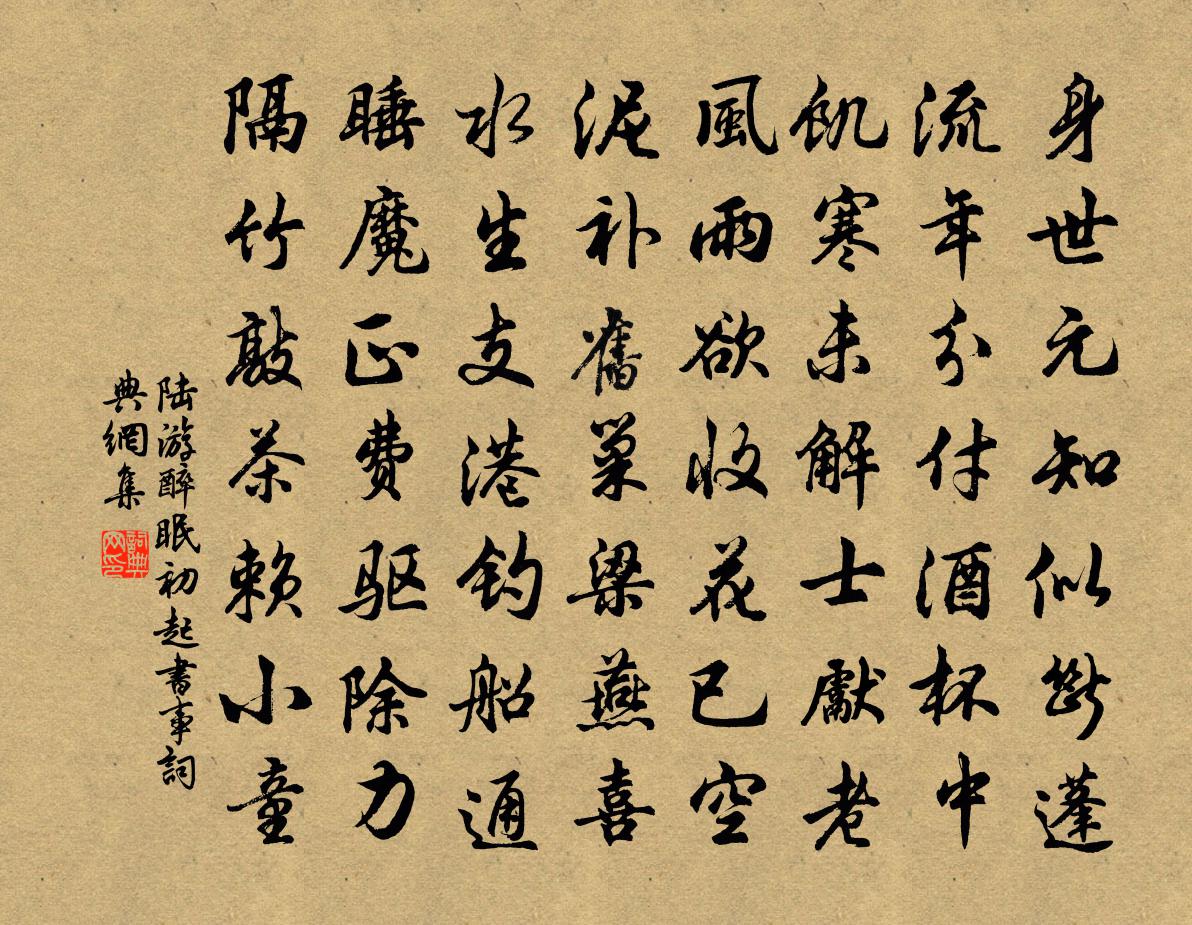 身世元知似斷蓬
流年分付酒杯中
飢寒未解士獻老
風雨欲收花已空
泥补舊巢梁燕喜
水生支港钓船通
睡魔正费驱除力
隔竹敲茶赖小童
陆游醉眠初起書事詞
典網集
詞典
网印